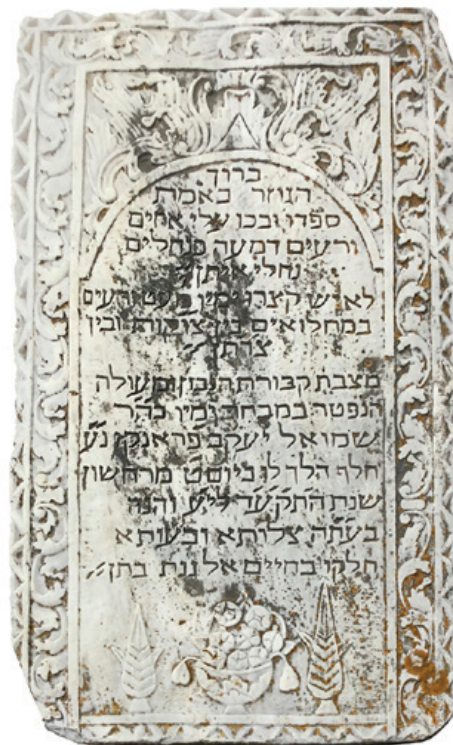 ברוך
הגוזר באמת
ספדו ובכו עלי אחים
ורעים דמעה כנחלים
נחלי איתן
לאיש קיצרו ימיו מעט ורעים
במחלואים בין ובין
צרתן
מצבת קבורת הנבון ומעולה
הנפטר במבחר ימיו כה״ר
שמואל יעקב פראנקו נ״ע
חלף הלך לו מרחשון
שנת התקעד ליצ והנה
בעתה צלותא ובעותא
חלקו בחיים אל גנת בתן